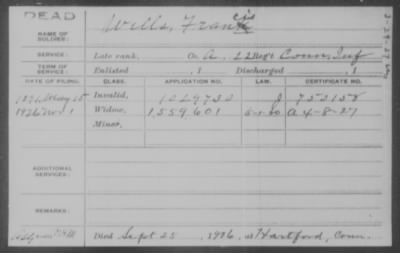 DEAD
NAME OF SOLDIER: Wells, Francis
SERVICE: Late rank, Co. A, 22 Regt Conn. Inf
TERM OF SERVICE: Enlisted , 1 Discharged , 1
DATE OF FILING. CLASS. APPLICATION NO. LAW. CERTIFICATE NO.
1891 May 25 Invalid, J 752158
1926 Nov 1 Widow, 1559601 A-4-8-27
Minor,
ADDITIONAL SERVICES:
REMARKS:
Died Sept 25, 1926, at Hartford, Conn.